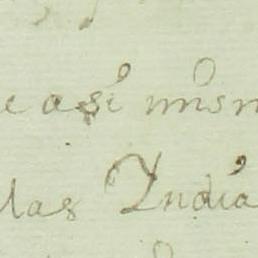 e asi mism
las India